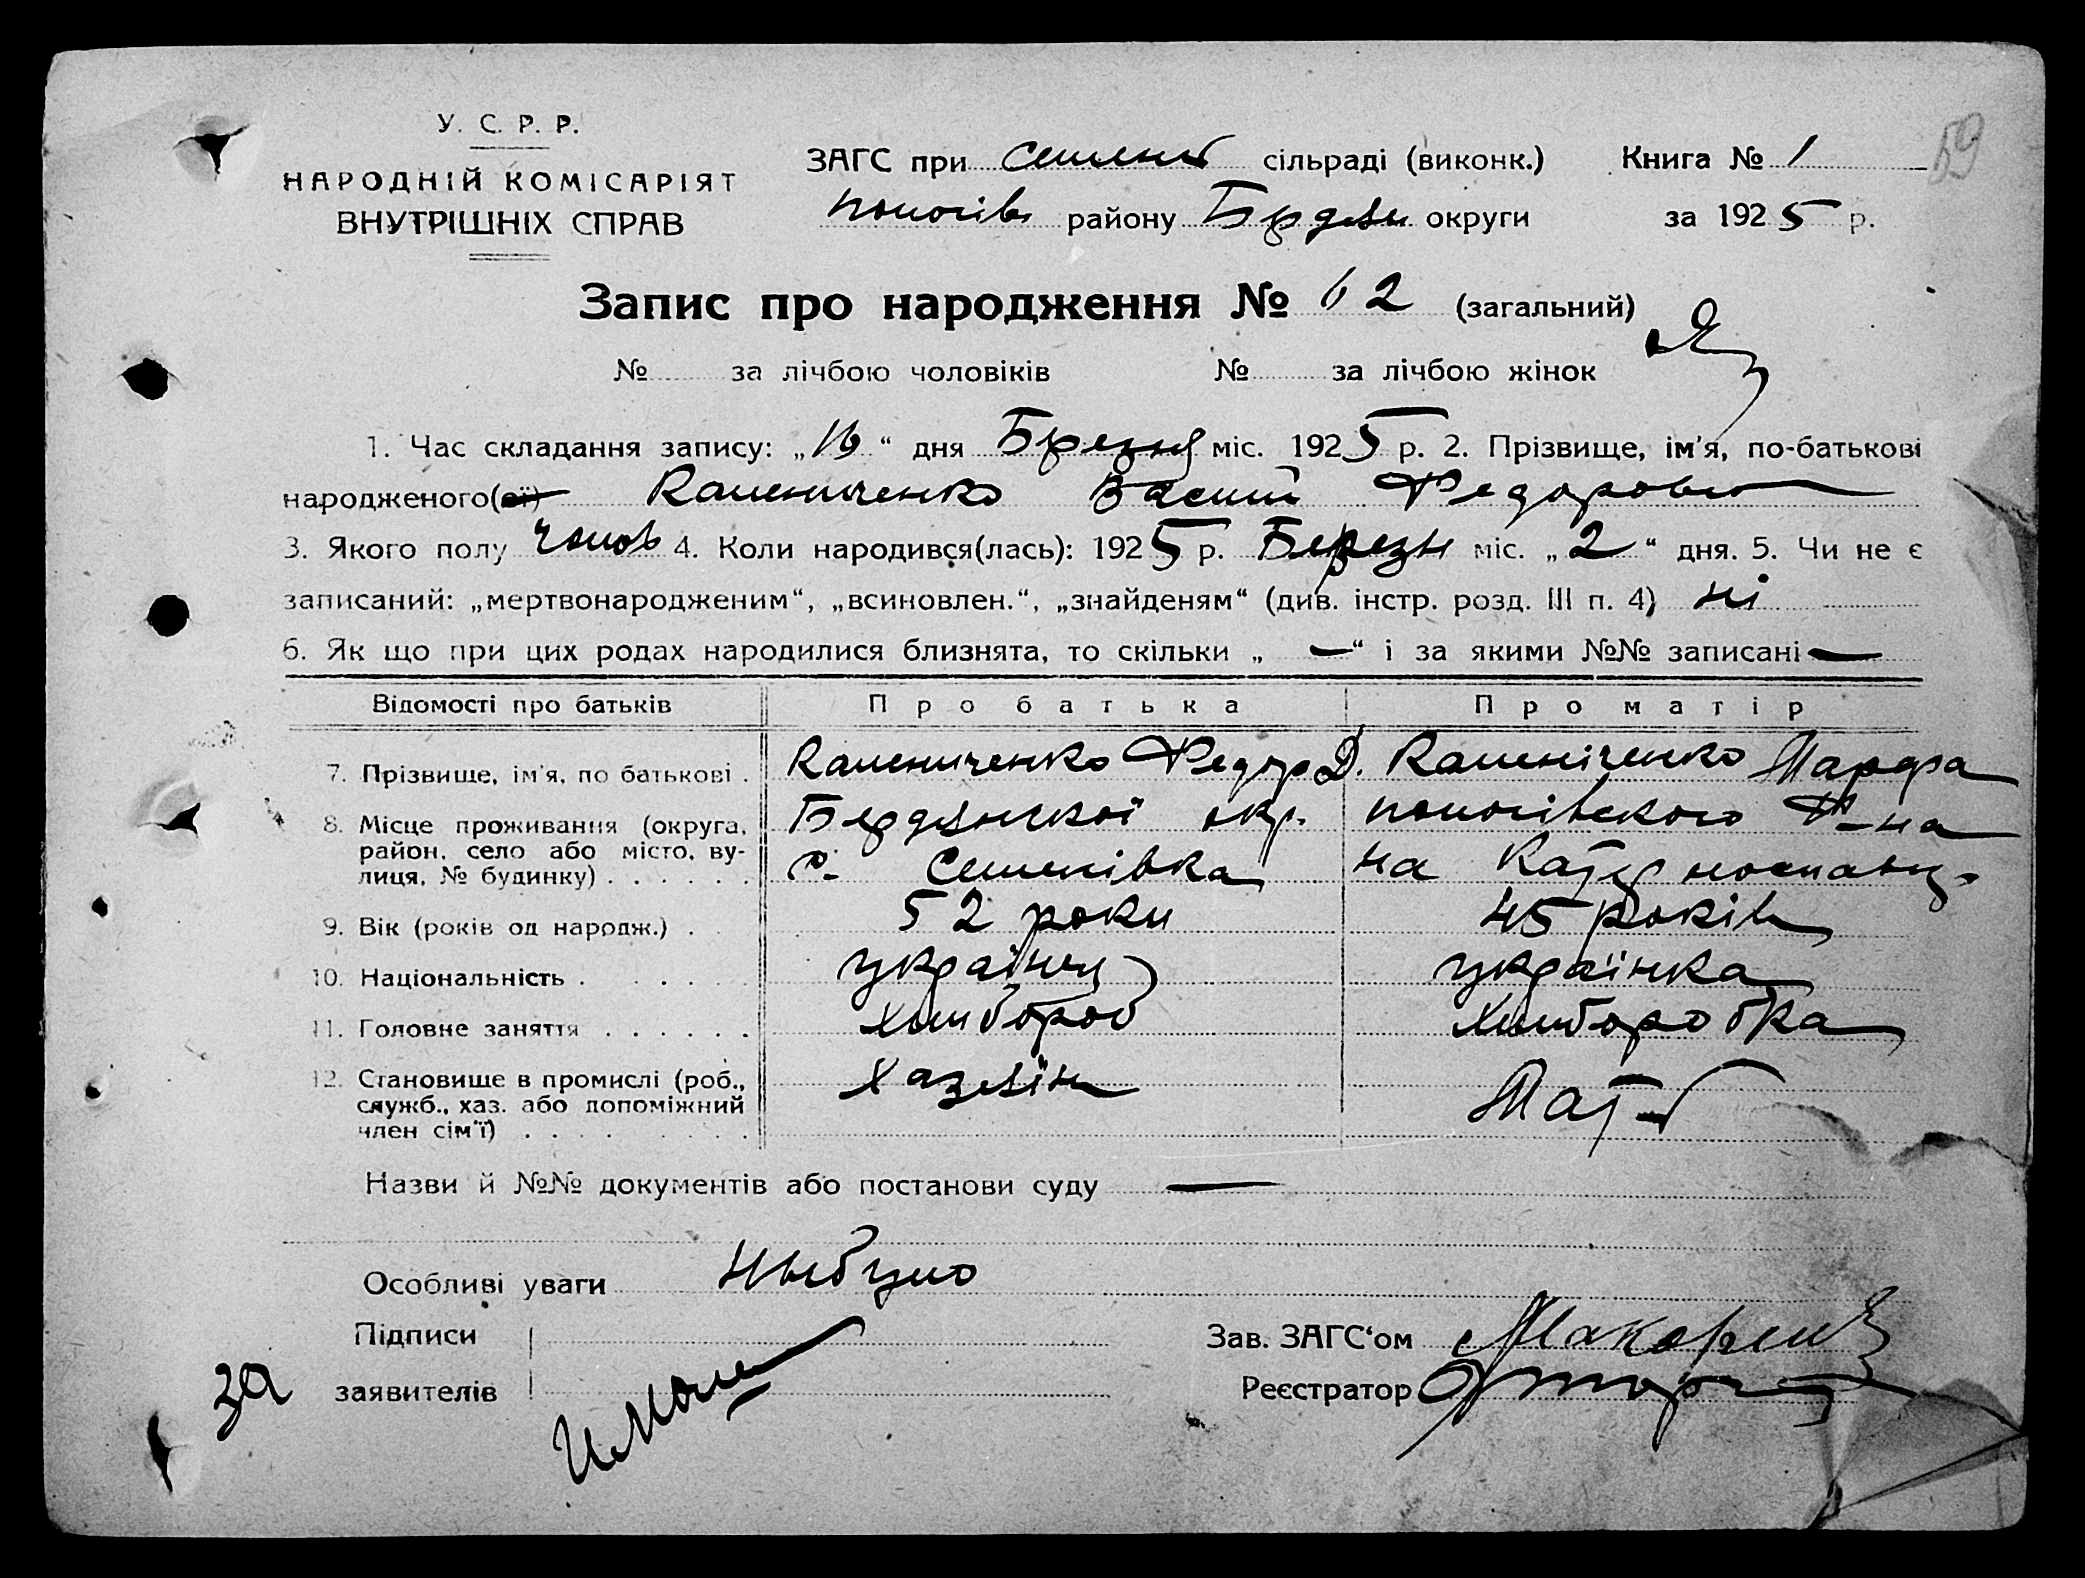 59
У. С. Р. Р.
НАРОДНІЙ КОМІСАРІЯТ
ВНУТРІШНІХ СПРАВ
ЗАГС при сільраді (виконк.) Книга № 1
району Бердян округи за 1925 р.
Запис про народження № 62 (загальний)
№ за лічбою чоловіків № за лічбою жінок
1. Час складання запису: „16“ дня Березня міс. 1925 р. 2. Прізвище, ім'я, по-батькові
народженого(ої) Камениченко Федорович
3. Якого полу чолов 4. Коли народився(лась): 1925 р. Березн міс. „2“ дня. 5. Чи не є
записаний: „мертвонародженим“, „всиновлен.“, „знайденям“ (див. інстр. розд. III п. 4) ні
6. Як що при цих родах народилися близнята, то скільки „ — “ і за якими №№ записані —
Відомості про батьків Про батька Про матір
7. Прізвище, ім'я, по батькові . Камениченко Федор Д. Каменіченко Марфа
8. Місце проживання (округа, район, село або місто, вулиця, № будинку) . . . . . . Бердянської окр. пологівского Р-на
с. Семенівка на
9. Вік (років од народж.) . 52 роки 45 років
10. Національність . . . . . . українец українка
11. Головне заняття . . . . . . хлибороб хлиборобка
12. Становище в промислі (роб., служб., хаз. або допоміжний член сім'ї) . . . . . . хазяїн
Назви й №№ документів або постанови суду —
Особливі уваги
Підписи
заявителів
Зав. ЗАГС'ом
Реєстратор
за